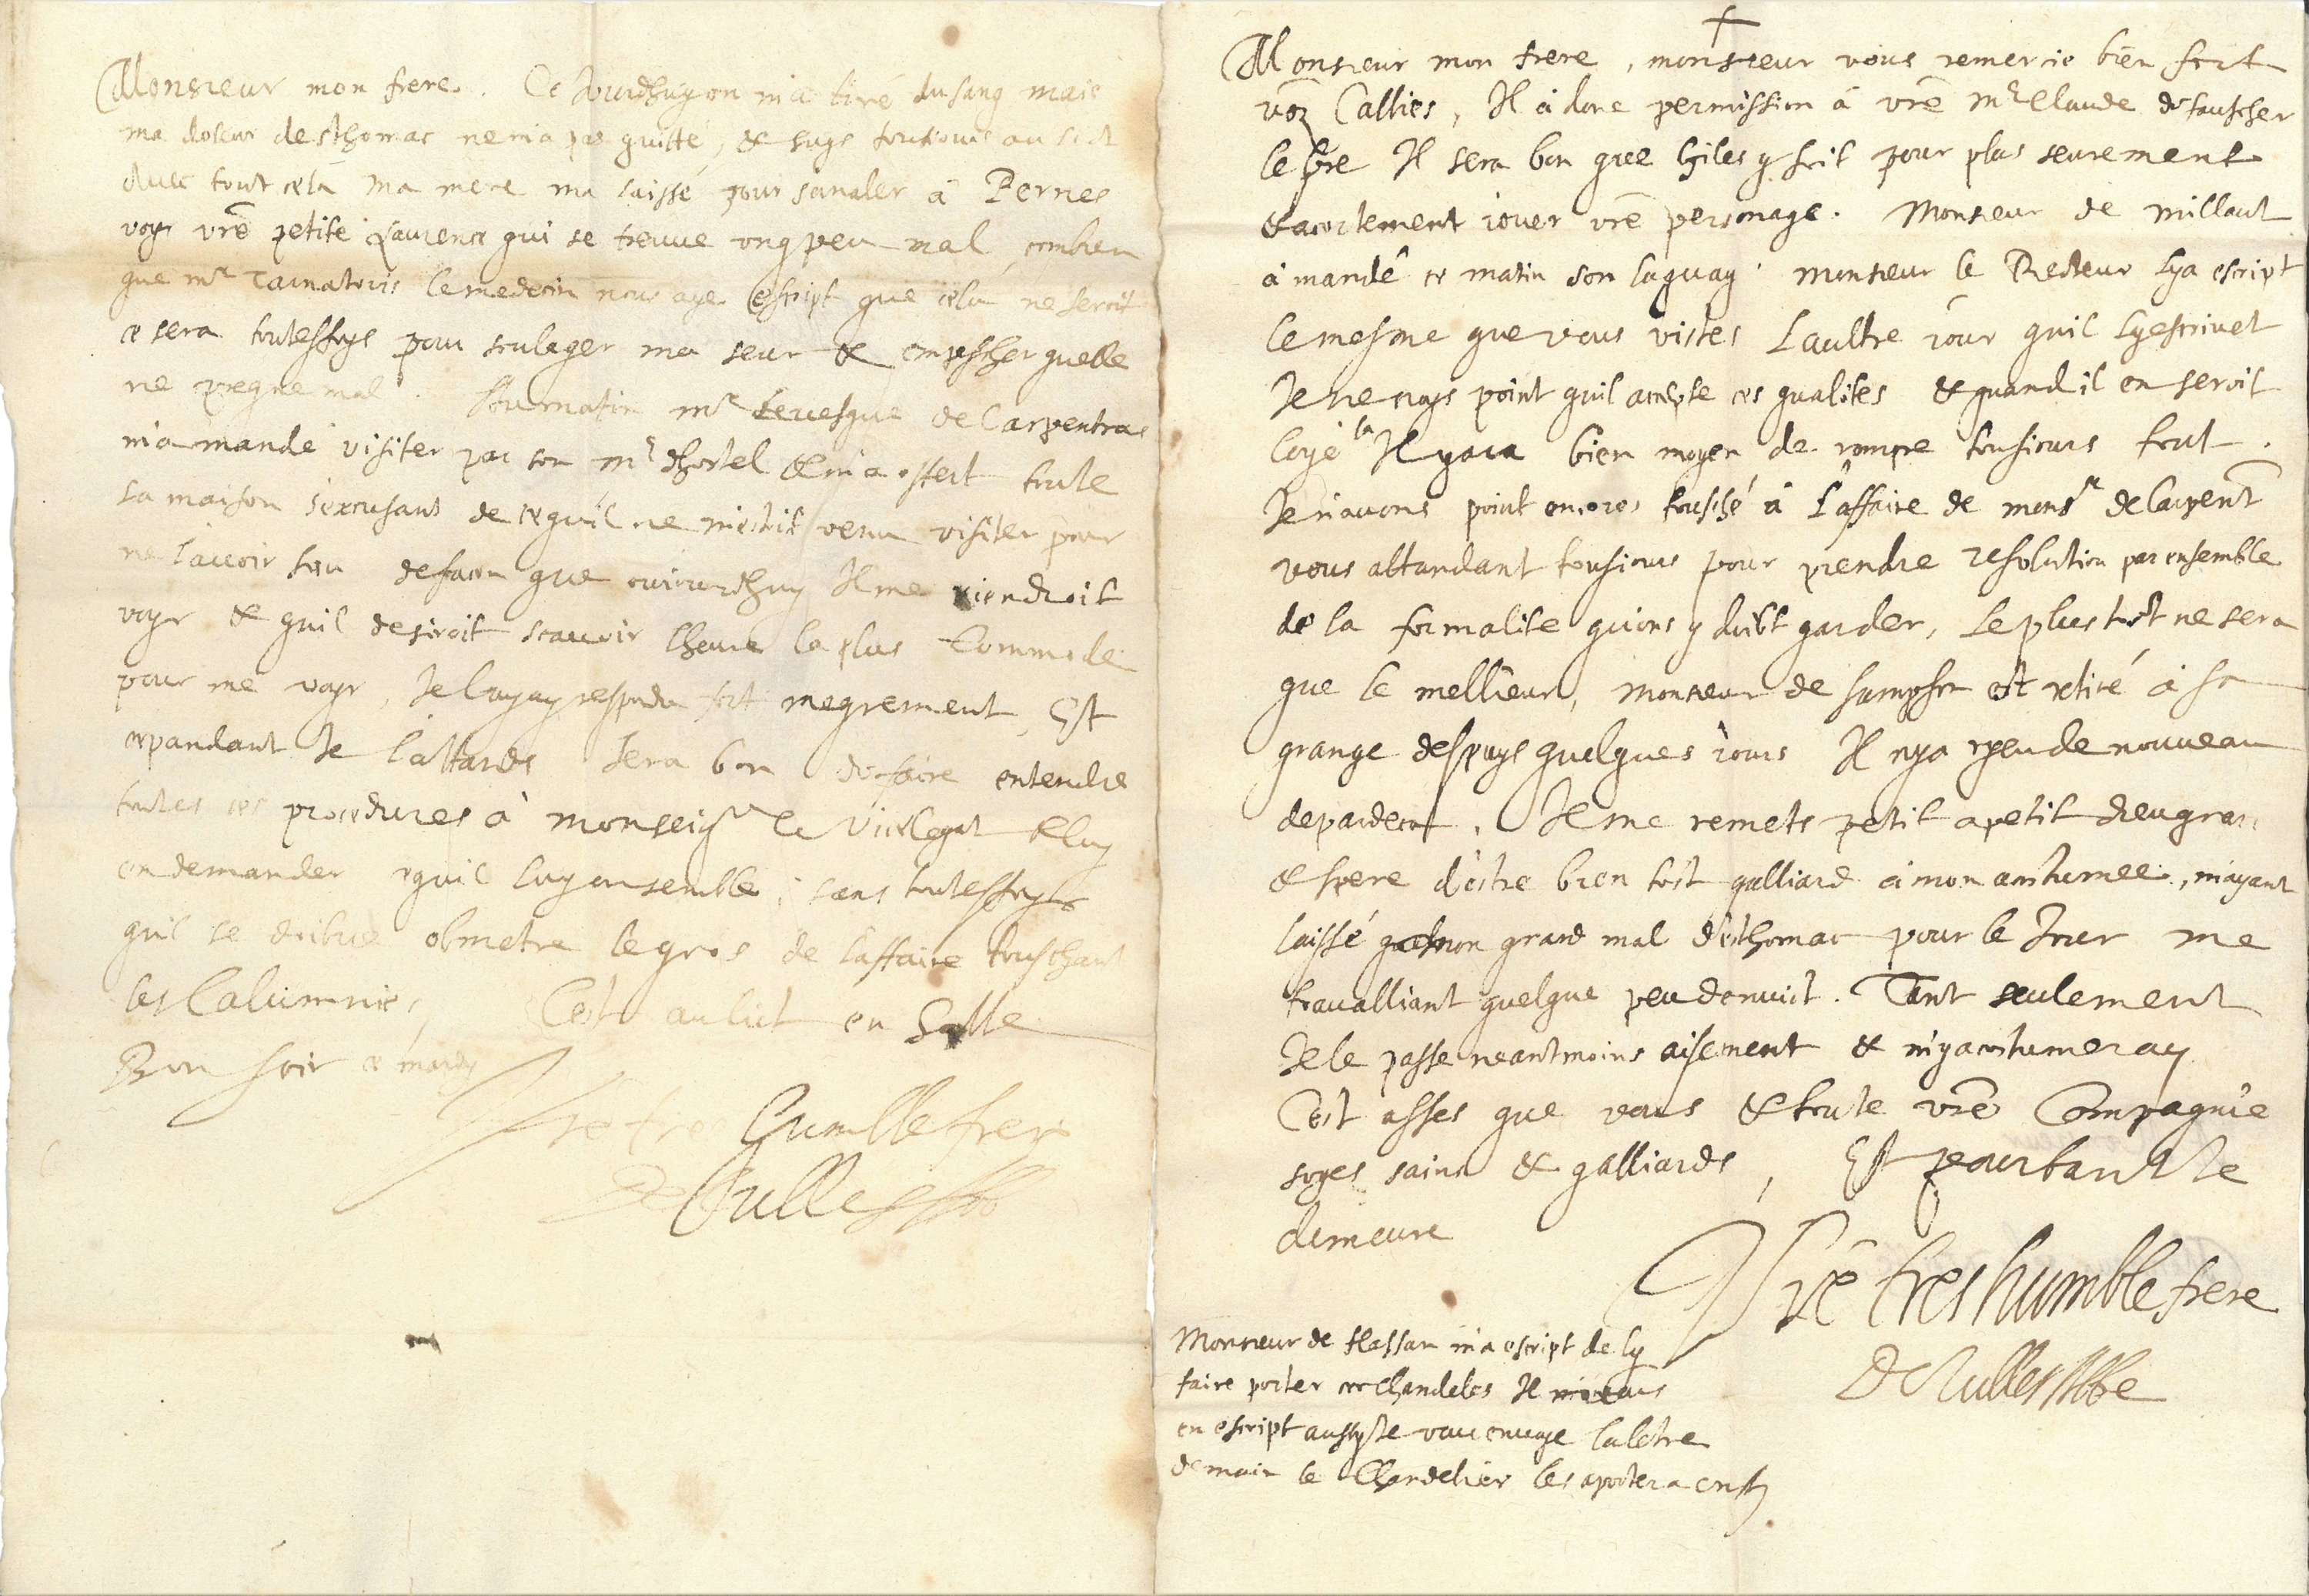 Monsieur mon frere. Ce Jourdhuy on m'a tiré du sang mais
ma doleur desthomac ne m'a pas quitté, & suys tousiours au lict
Avec tout cela ma mere m'a laissé pour s'en aler à Pernes
voyr vre petite Laurence qui se treuve ung peu mal, combien
que mr le medecin nous aye escript que cela ne seroit
ce sera toutesfoys pour soulager ma seur & empescher quelle
ne preigne mal. matin mr Levesque de Carpentras
m'a mandé visiter par son mr dhostel & m'a offert toute
sa maison s'excusant de ce quil ne m'estoit venu visiter pour
ne l'avoir sceu de facon que aujourdhuy Il me viendroit
voyr & quil desiroit scavoir lheure la plus Commode
pour me voyr, Je luy ay respondu fort megrement, Est
cepandant Je l'attands sera bon de faire entendre
toutes ces procedures à monseigr le Vicelegat & luy
en demander ce quil luy en semble, sans toutesfoys
quil se doibve obmetre le gros de l'affaire touschant
les Calumnies, C'est au lict en Salle
Bon soir ce mardy
Vre tres humble frere
De Tulles
Monsieur mon frere, monsieur vous remercie bien fort
voz Callies, Il a done permission à vre mr Claude de fauscher
le pre Il sera bon que Giles y soit pour plus seurement
& acortement iouer vre personage. Monsieur de millaut
à mandé ce matin son laquay. monsieur le Recteur ly a escript
le mesme que vous vistes Laultre iour quil ly escrivet
Je ne croys point quil accepte ces qualites & quand il en seroit
logé la Il y ara bien moyen de rompre tousiours tout.
Je n'avons point encores tousché à l'affaire de monsr de Carpent
vous attandant tousiours pour prendre resolution par ensemble
de la formalite quions y doibt garder, Le plus tost ne sera
que le mellieur, monsieur de est retiré à sa
grange despuys quelques iours Il ny a ryen de nouveau
depardeca. Je me remets petit a petit dieu grace
& spere d'estre bien tost galliard à mon acostumee, m'ayant
laissé mon grand mal d'esthomac pour le Jour me
travalliant quelque peu de nuict. Tant seulement
Je le passe neantmoins aisement & m'y acostumeray
C'est asses que vous & toute vre Compagnie
soyes sains & galliards, Et pourtant Je
demeure
Vre tres humble frere
De Tulles
Monsieur de m'a escript de ly
faire porter ces chandeles Il
en escript aussy Je vous envoye la letre
demain le Chandelier les aportera